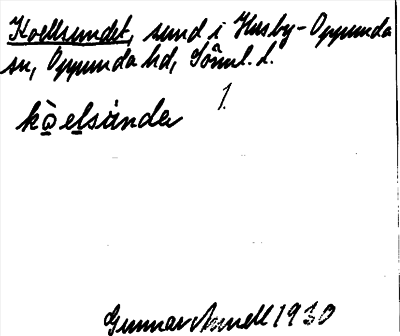 Koellsundet, sund i Husby-Oppunda
sn, Oppunda hd, Söml. l.
1.
kọ̀ẹlsṳ̀ndä
Gunnar Arnell 1930